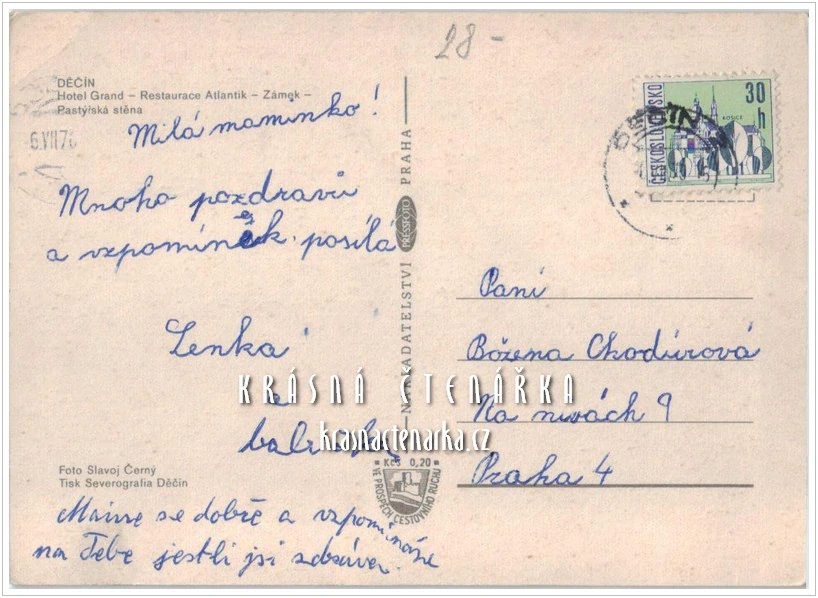 28-
DĚČÍN
Hotel Grand – Restaurace Atlantik – Zámek –
Pastýřská stěna
6.VII.76
Milá maminko!
Mnoho pozdravů
a vzpomínek posílá
Lenka
a
Foto Slavoj Černý
Tisk Severografia Děčín
Máme se dobře a vzpomínáme
na Tebe jestli jsi zdráva.
NAKLADATELSTVÍ PRESSFOTO PRAHA
Kčs 0,20
VE PROSPĚCH CESTOVNÍHO RUCHU
ČESKOSLOVENSKO
30 h
KOŠICE
DĚČÍN
Paní
Božena Chodúrová
Na nivách 9
Praha 4
KRÁSNÁ ČTENÁŘKA
krasnactenarka.cz